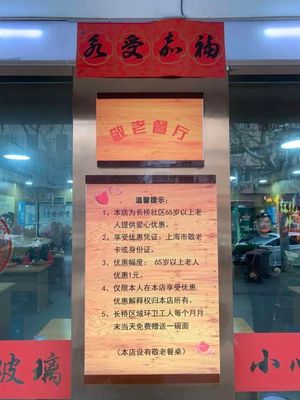 永受嘉福
敬老餐厅
温馨提示:
1、本店为长桥社区65岁以上老
人提供爱心优惠。
2、享受优惠凭证:上海市敬老
卡或身份证。
3、优惠幅度: 65岁以上老人
优惠1元。
4、仅限本人在本店享受优惠,
优惠解释权归本店所有。
5、长桥区域环卫工人每个月月
末当天免费赠送一碗面
(本店设有敬老餐桌)
玻璃
小心